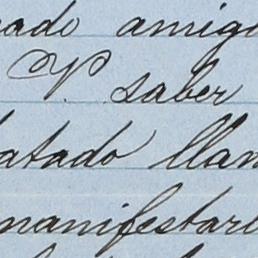 rado amigo
V. saber
tatado llam
manifestarl